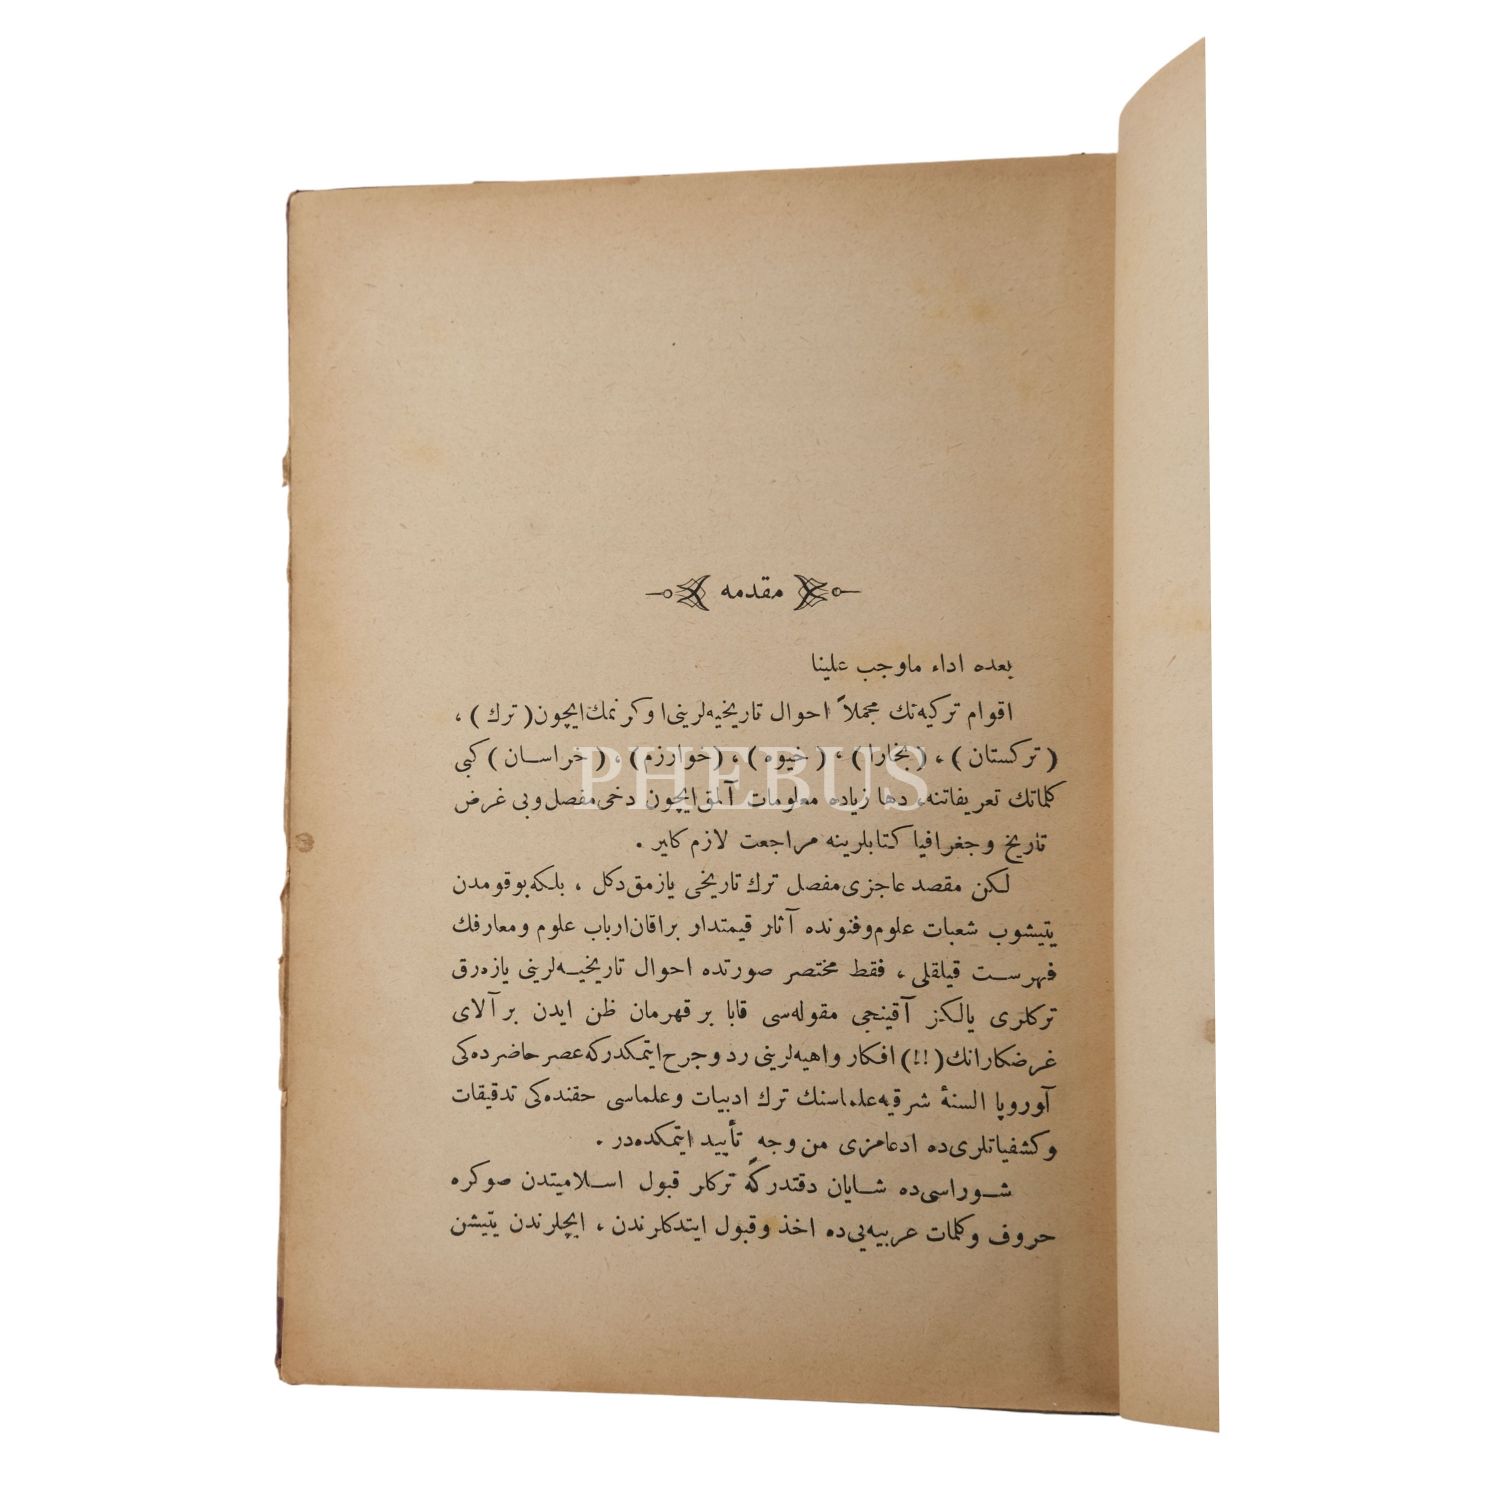 مقدمه
بعده اداء ماوجب علينا
اقوام تركيه‌نك مجملاً احوال تاريخيه‌لرينى اوكرنمك ايچون (ترك) ،
(تركستان) ، (بخارا) ، (خيوه) ، (خوارزم) ، (خراسان) كبى
كلماتك تعريفاتنه، دها زياده معلومات آلمق ايچون دخى مفصل وبى غرض
تاريخ وجغرافيا كتابلرينه مراجعت لازم كلير .
لكن مقصد عاجزى مفصل ترك تاريخى يازمق دكل ، بلكه بو قومدن
يتيشوب شعبات علوم وفنونده آثار قيمتدار براقان ارباب علوم ومعارفك
فهرست قيلقلى ، فقط مختصر صورتده احوال تاريخيه‌لرينى يازه‌رق
تركلرى يالكز آقينجى مقوله‌سى قابا بر قهرمان ظن ايدن بر آلاى
غرضكارانك (!!) افكار واهيه‌لرينى رد وجرح ايتمكدركه عصر حاضرده‌كى
آوروپا السنهٔ شرقيه علماسنك ترك ادبيات وعلماسى حقنده‌كى تدقيقات
وكشفياتلرى‌ده ادعامزى من وجهٍ تأييد ايتمكده‌در .
شوراسى‌ده شايان دقتدركه تركلر قبول اسلاميتدن صوكره
حروف وكلمات عربيه‌يى‌ده اخذ وقبول ايتدكلرندن ، ايچلرندن يتيشن
PHEBUS